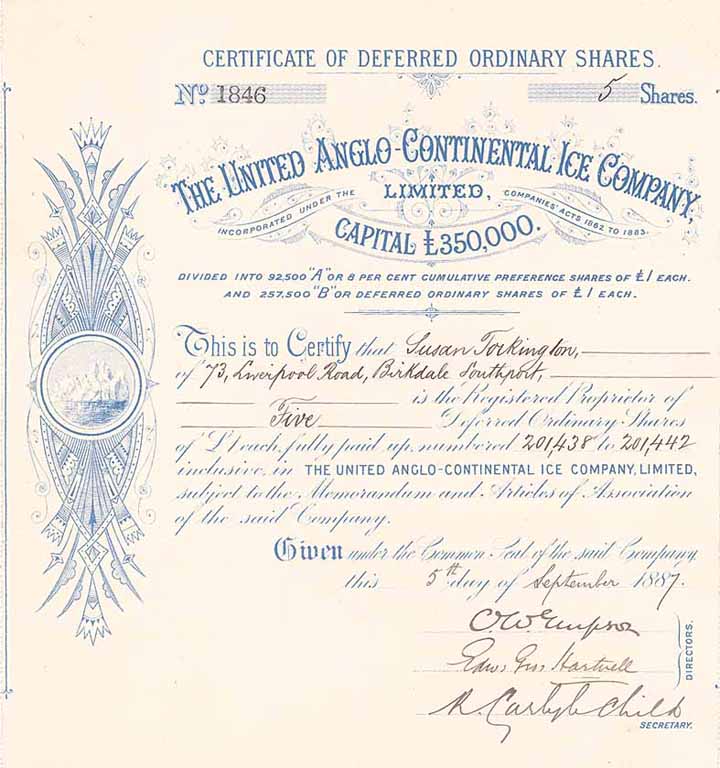 CERTIFICATE OF DEFERRED ORDINARY SHARES.
No. 1846 5 Shares.
THE UNITED ANGLO-CONTINENTAL ICE COMPANY,
LIMITED,
INCORPORATED UNDER THE COMPANIES' ACTS 1862 TO 1883.
CAPITAL £350,000.
DIVIDED INTO 92,500 "A" OR 8 PER CENT CUMULATIVE PREFERENCE SHARES OF £1 EACH.
AND 257,500 "B" OR DEFERRED ORDINARY SHARES OF £1 EACH.
This is to Certify that Susan Torkington,
of 73, Liverpool Road, Birkdale Southport,
is the Registered Proprietor of
Five Deferred Ordinary Shares
of £1 each, fully paid up, numbered 201,438 to 201,442
inclusive, in THE UNITED ANGLO-CONTINENTAL ICE COMPANY, LIMITED,
subject to the Memorandum and Articles of Association
of the said Company.
Given under the Common Seal of the said Company,
this 5th day of September 1887.
C. W. Empson
Hartnell
DIRECTORS.
R. Carlyle Child
SECRETARY.